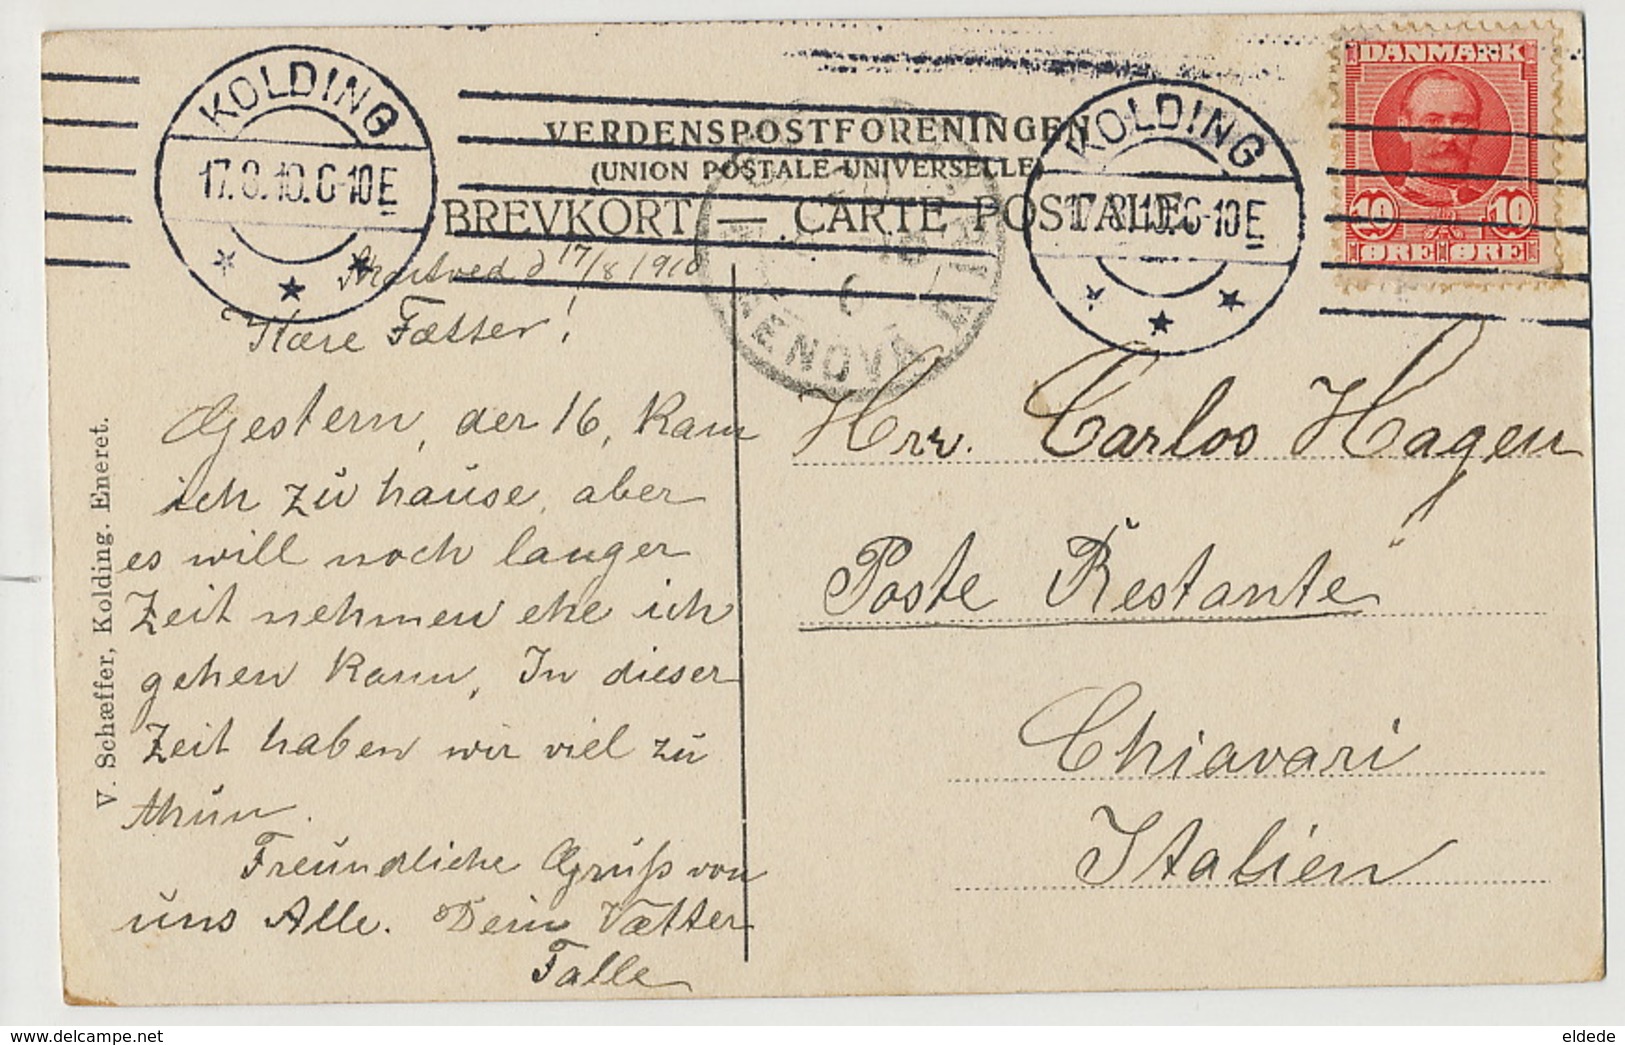 DANMARK
10 10
ØRE ØRE
KOLDING
17.8.10.6-10E
KOLDING
17.8.10.6-10E
VERDENSPOSTFORENINGEN
(UNION POSTALE UNIVERSELLE)
BREVKORT — CARTE POSTALE
GENOVA
d 17/8 1910
Kære Fætter!
Gestern, der 16, kam
ich zu hause, aber
es will noch langer
Zeit nehmen ehe ich
gehen kann, In dieser
Zeit haben wir viel zu
thun.
Freundliche Gruß von
uns Alle. Dein Vætter
Falle
Hrr. Carlos Hagen
Poste Restante
Chiavari
Italien
V. Schæffer, Kolding. Eneret.
eldede